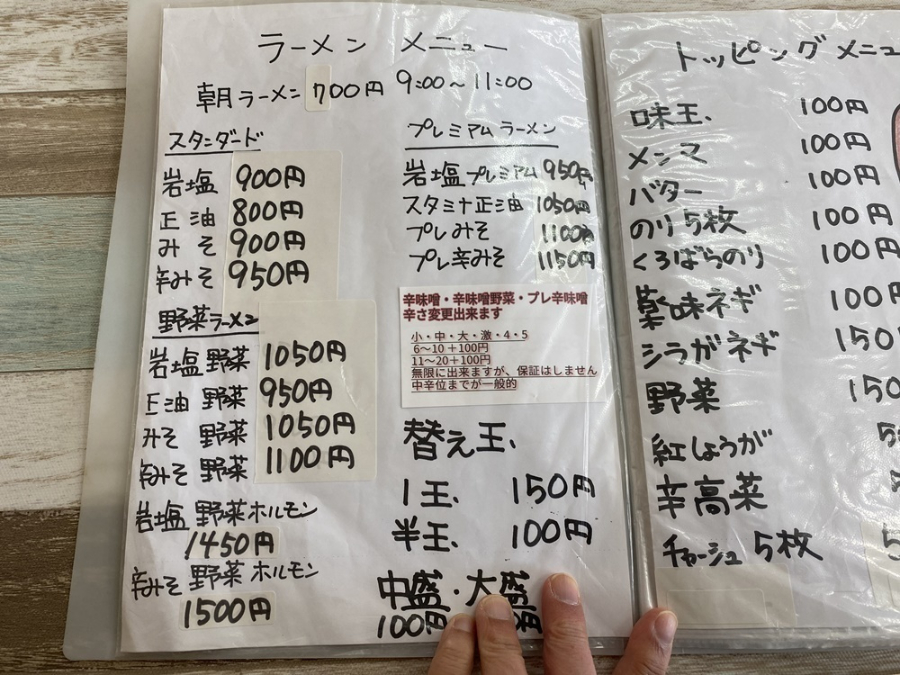 ラーメン メニュー
朝ラーメン 700円 9:00～11:00
スタンダード
岩塩 900円
正油 800円
みそ 900円
辛みそ 950円
野菜ラーメン
岩塩 野菜 1050円
正油 野菜 950円
みそ 野菜 1050円
辛みそ 野菜 1100円
岩塩 野菜ホルモン
1450円
辛みそ 野菜 ホルモン
1500円
プレミアムラーメン
岩塩プレミアム 950円
スタミナ正油 1050円
プレみそ 1100円
プレ辛みそ 1150円
辛味噌・辛味噌野菜・プレ辛味噌
辛さ変更出来ます
小・中・大・激・4・5
6～10＋100円
11～20＋100円
無限に出来ますが、保証はしません
中辛位までが一般的
替え玉
1玉 150円
半玉 100円
中盛・大盛
100円 円
トッピングメニュ
味玉 100円
メンマ 100円
バター 100円
のり5枚 100円
くろばらのり 100円
薬味ネギ 100円
シラガネギ 150
野菜 150
紅しょうが 5
辛高菜
チャーシュ 5枚 5